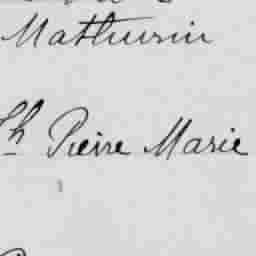 Mathurin
Pierre Marie